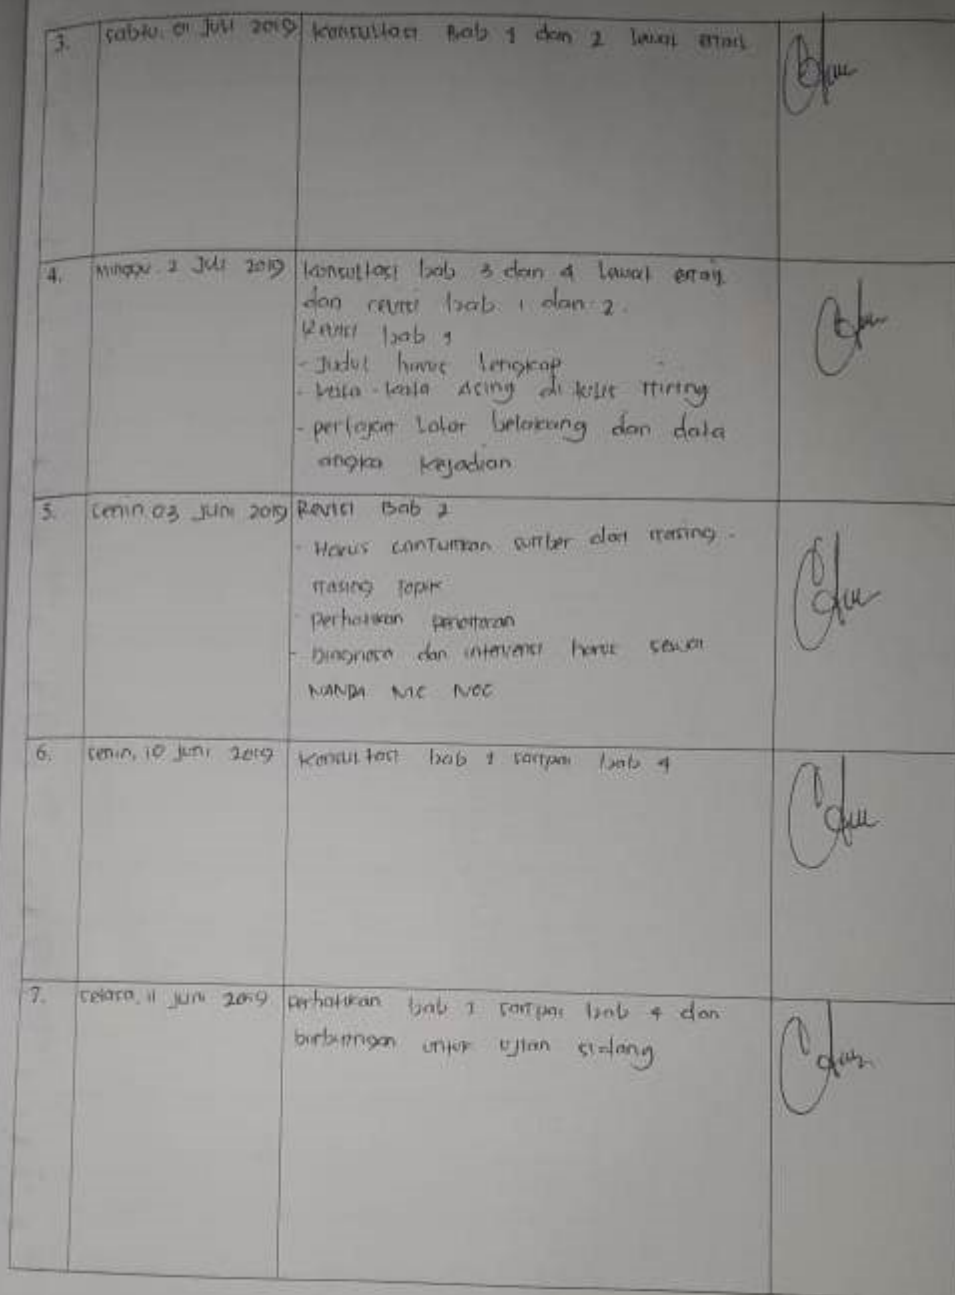 3. Sabtu, 01 Juli 2019 Konsultasi Bab 1 dan 2 lewat email
4. Minggu 2 Juli 2019 Konsultasi bab 3 dan 4 lewat email
dan revisi bab 1 dan 2.
Revisi bab 1
- Judul harus lengkap
- kata-kata Asing di tulis miring
- perjelas Latar belakang dan data
angka kejadian
5. Senin, 03 Juni 2019 Revisi Bab 2
- Harus cantumkan sumber dari masing-
masing topik
- Perhatikan
- Diagnosa dan intervensi harus sesuai
NANDA NIC NOC
6. Senin, 10 Juni 2019 Konsultasi bab 1 sampai bab 4
7. Selasa, 11 Juni 2019 Perhatikan bab 1 sampai bab 4 dan
bimbingan untuk Ujian sidang